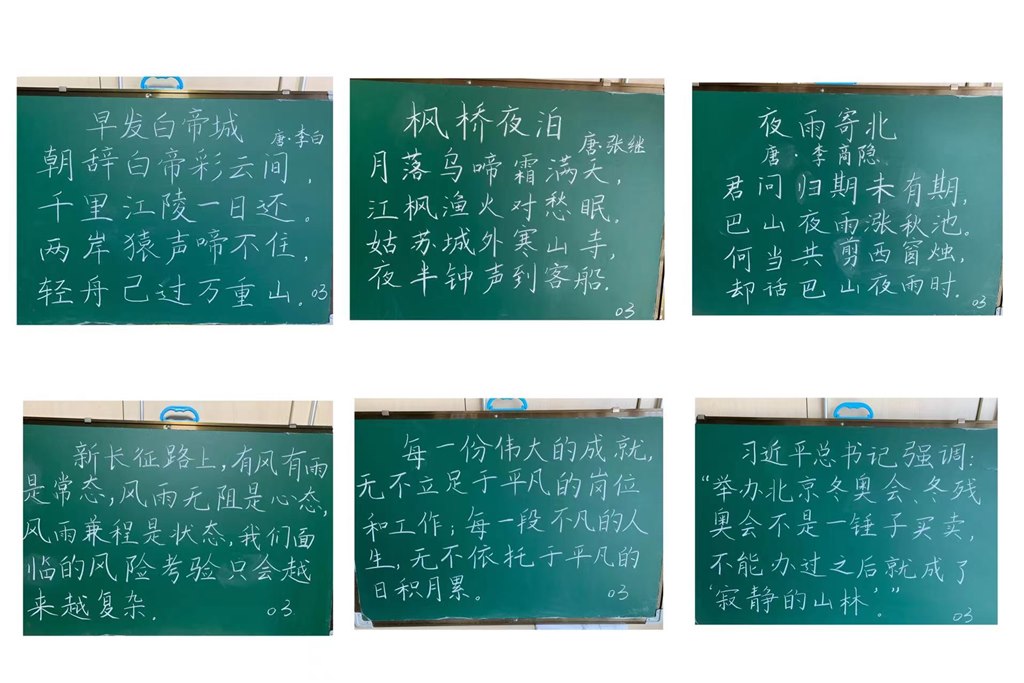 早发白帝城
唐·李白
朝辞白帝彩云间，
千里江陵一日还。
两岸猿声啼不住，
轻舟已过万重山。
03
枫桥夜泊
唐·张继
月落乌啼霜满天，
江枫渔火对愁眠。
姑苏城外寒山寺，
夜半钟声到客船。
03
夜雨寄北
唐·李商隐
君问归期未有期，
巴山夜雨涨秋池。
何当共剪西窗烛，
却话巴山夜雨时。
03
新长征路上，有风有雨
是常态，风雨无阻是心态，
风雨兼程是状态，我们面
临的风险考验只会越
来越复杂。
03
每一份伟大的成就，
无不立足于平凡的岗位
和工作；每一段不凡的人
生，无不依托于平凡的
日积月累。
03
习近平总书记强调：
“举办北京冬奥会、冬残
奥会不是一锤子买卖，
不能办过之后就成了
‘寂静的山林’。”
03